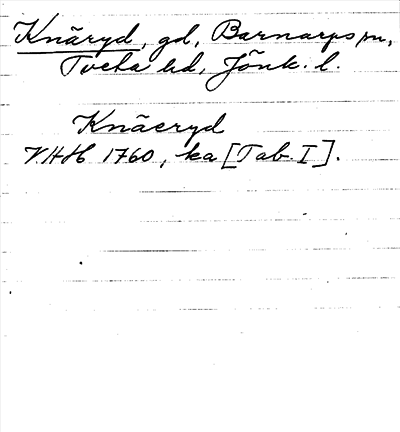 Knäryd, gd, Barnarps sn,
Tveta hd, Jönk. l.
Knäeryd
VHH 1760, ka [Tab. I].